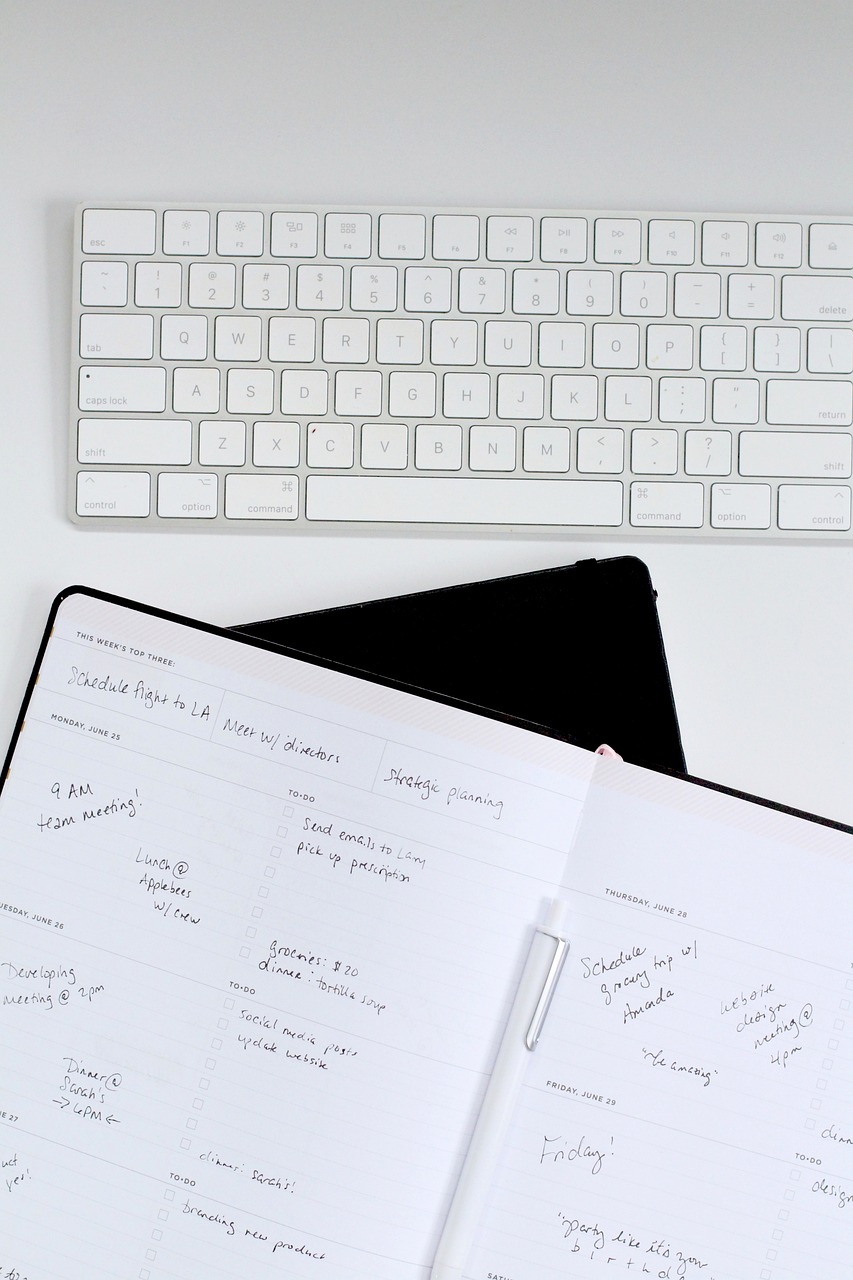 esc F1 F2 F3 F4 F5 F6 F7 F8 F9 F10 F11 F12
~ ! @ # $ % ^ & * ( ) — +
` 1 2 3 4 5 6 7 8 9 0 - = delete
tab Q W E R T Y U I O P { [ } ] | \
caps lock A S D F G H J K L : ; " ' return
shift Z X C V B N M < , > . ? / shift
control option command command option control
THIS WEEK'S TOP THREE:
Schedule flight to LA
Meet w/ directors
Strategic planning
MONDAY, JUNE 25
9 AM
team meeting!
Lunch @
Applebees
w/ crew
TO-DO
Send emails to
pick up prescription
groceries: $20
dinner: tortilla soup
UESDAY, JUNE 26
Developing
meeting @ 2pm
Dinner @
Sarah's
TO-DO
social media posts
update website
dinner: Sarah's!
E 27
uct
yes!
TO-DO
branding new product
THURSDAY, JUNE 28
Schedule
grocery trip w/
Amanda
website
design
meeting @
4pm
"be amazing"
FRIDAY, JUNE 29
Friday!
"party like it's your
birthd
TO-DO
design
SAT